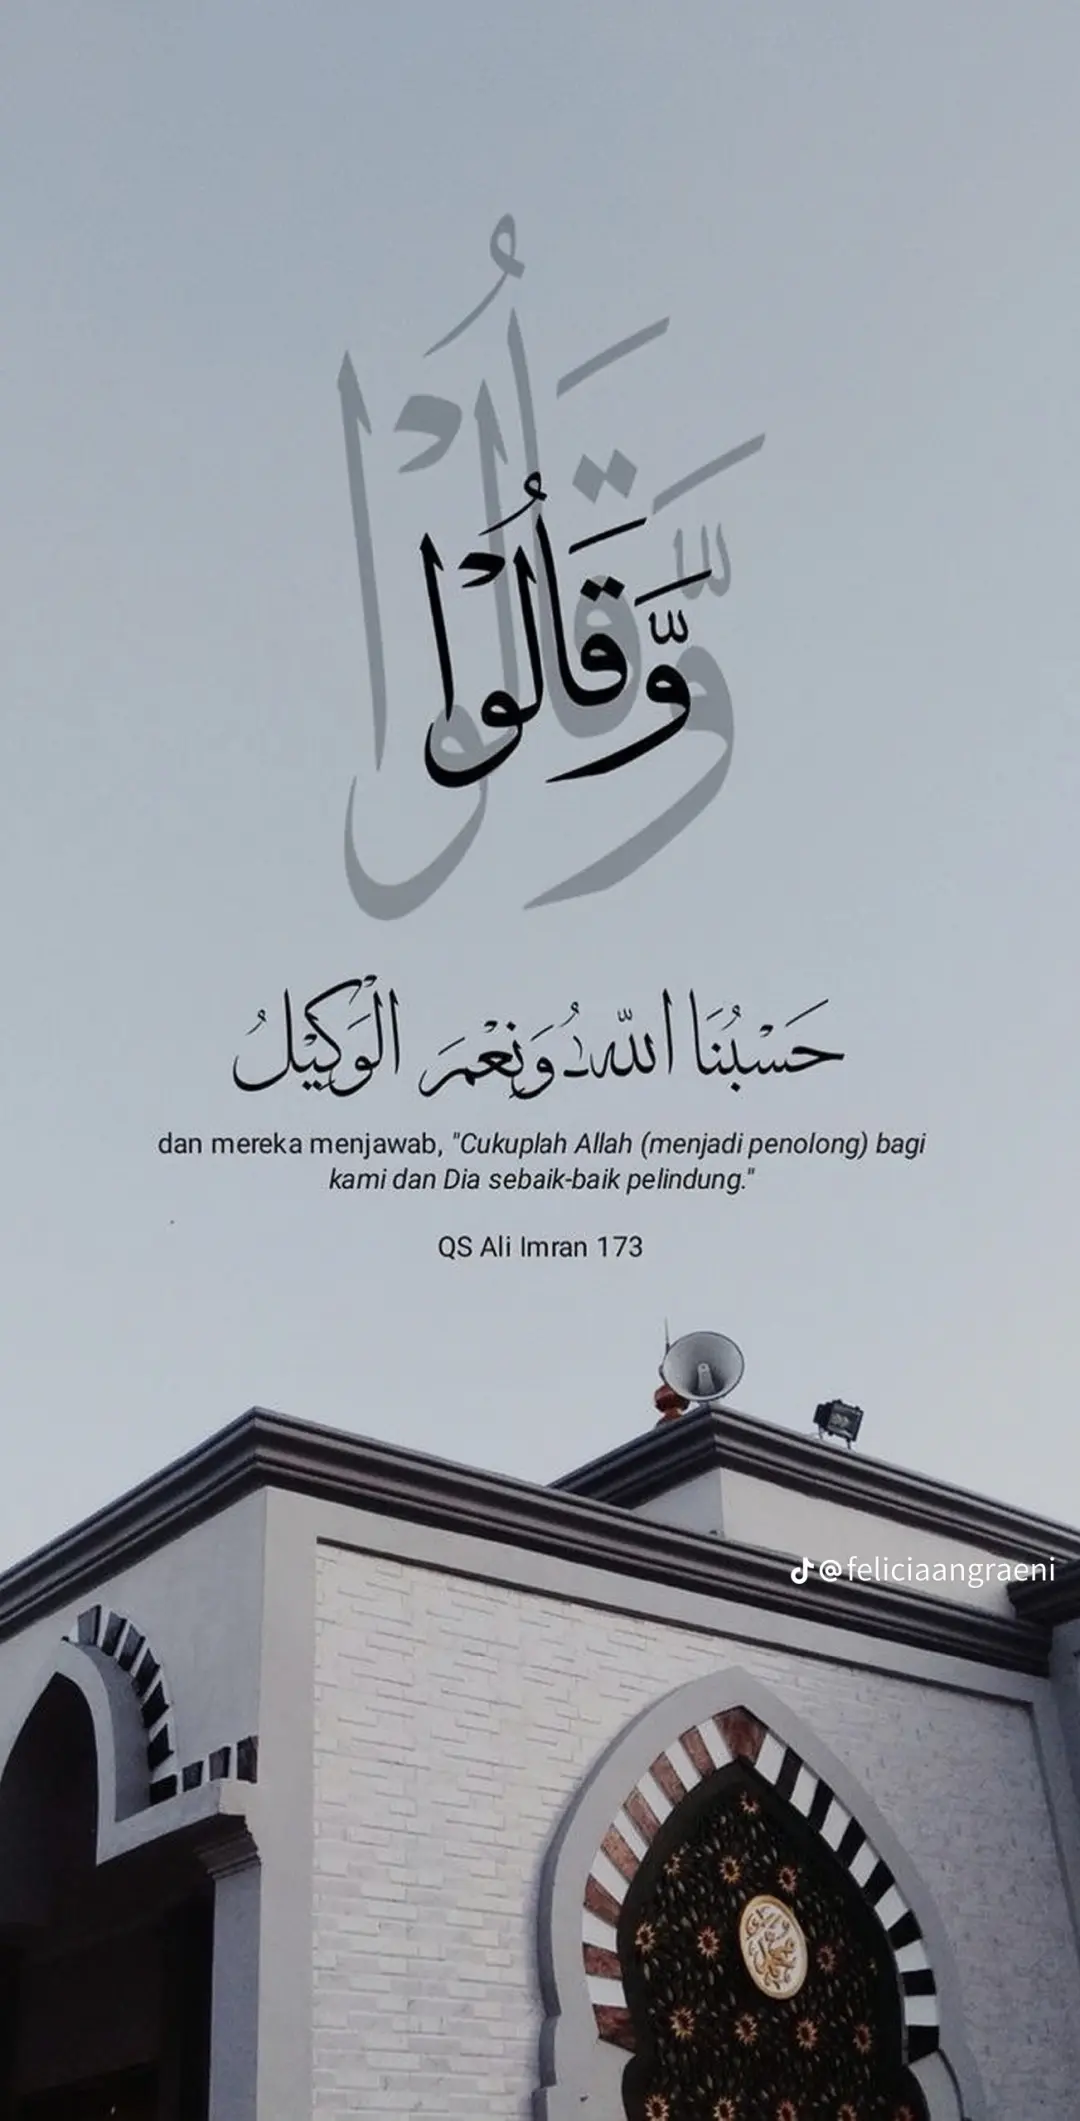 وَّقَالُوْا
وَّقَالُوْا
حَسْبُنَا اللّٰهُ وَنِعْمَ الْوَكِيْلُ
dan mereka menjawab, "Cukuplah Allah (menjadi penolong) bagi
kami dan Dia sebaik-baik pelindung."
QS Ali Imran 173
@feliciaangraeni